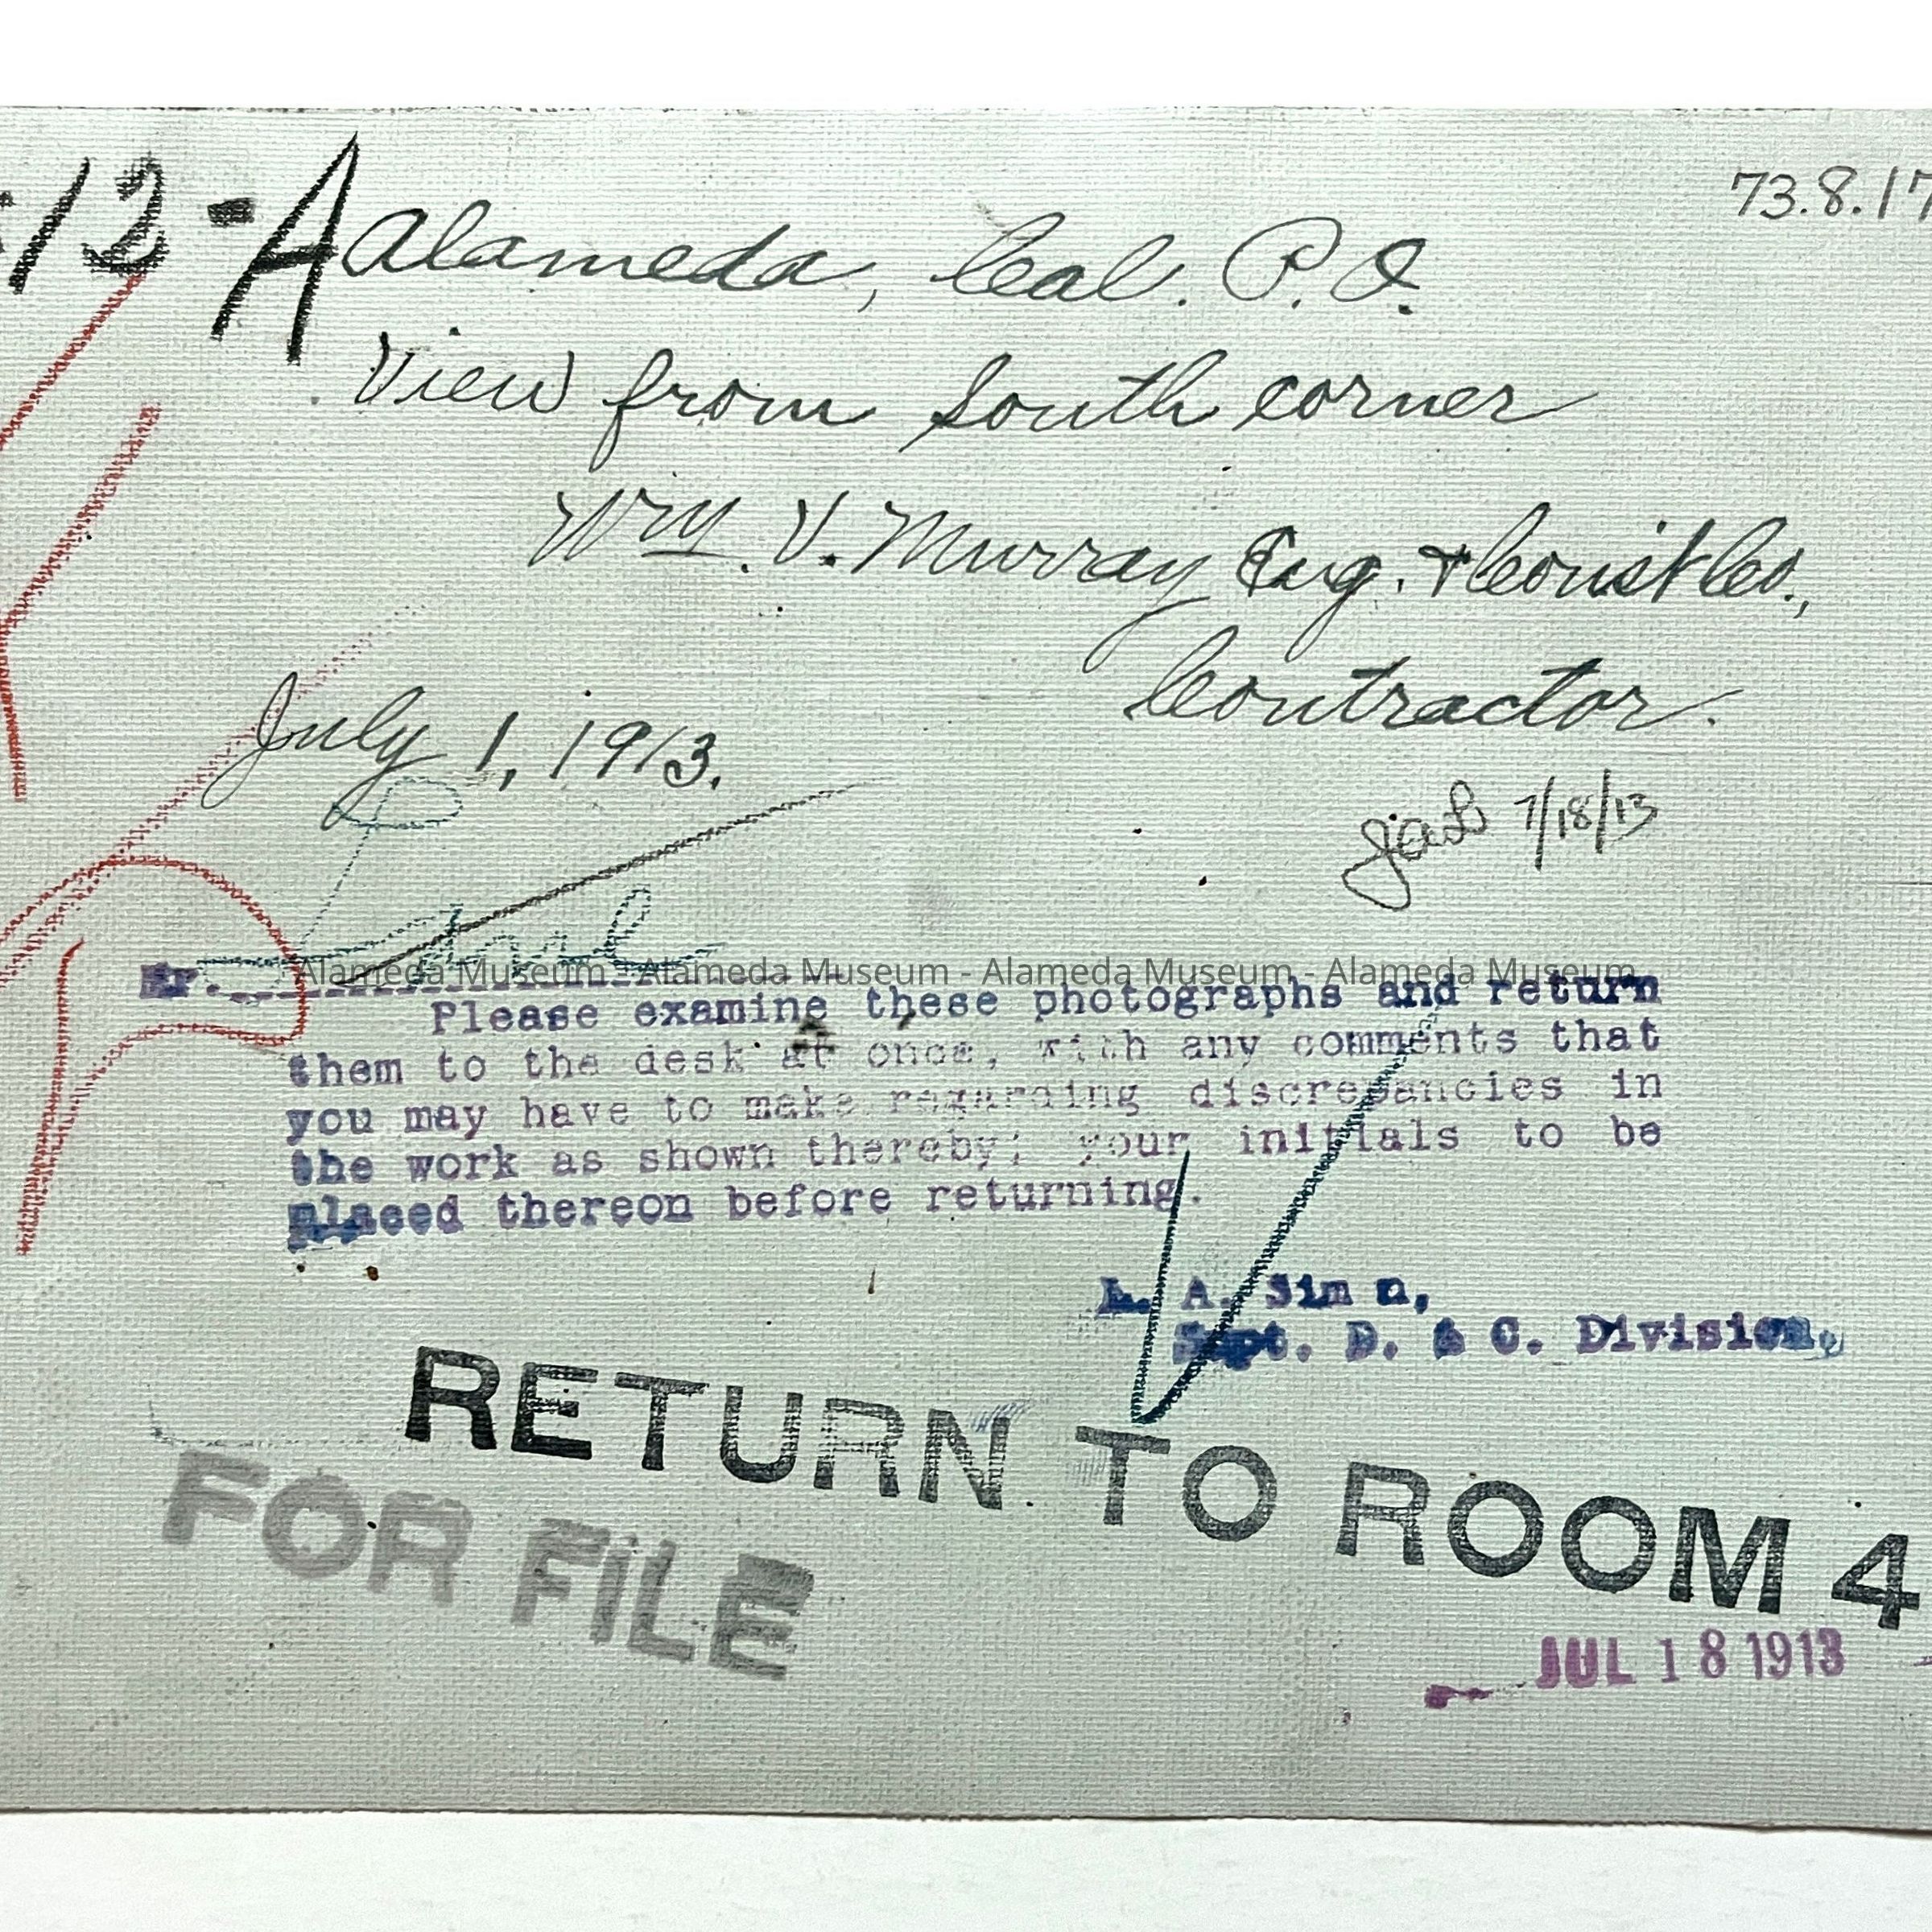 13-A
73.8.17
Alameda, Cal. P.O.
View from South corner
Wm. V. Murray Eng. & Const Co.,
Contractor.
July 1, 1913.
7/18/13
Mr.
Alameda Museum - Alameda Museum - Alameda Museum - Alameda Museum
Please examine these photographs and return
them to the desk at once, with any comments that
you may have to make regarding discrepancies in
the work as shown thereby; your initials to be
placed thereon before returning.
L. A. Sim n,
Supt. D. & C. Division.
RETURN TO ROOM 4
FOR FILE
JUL 18 1913